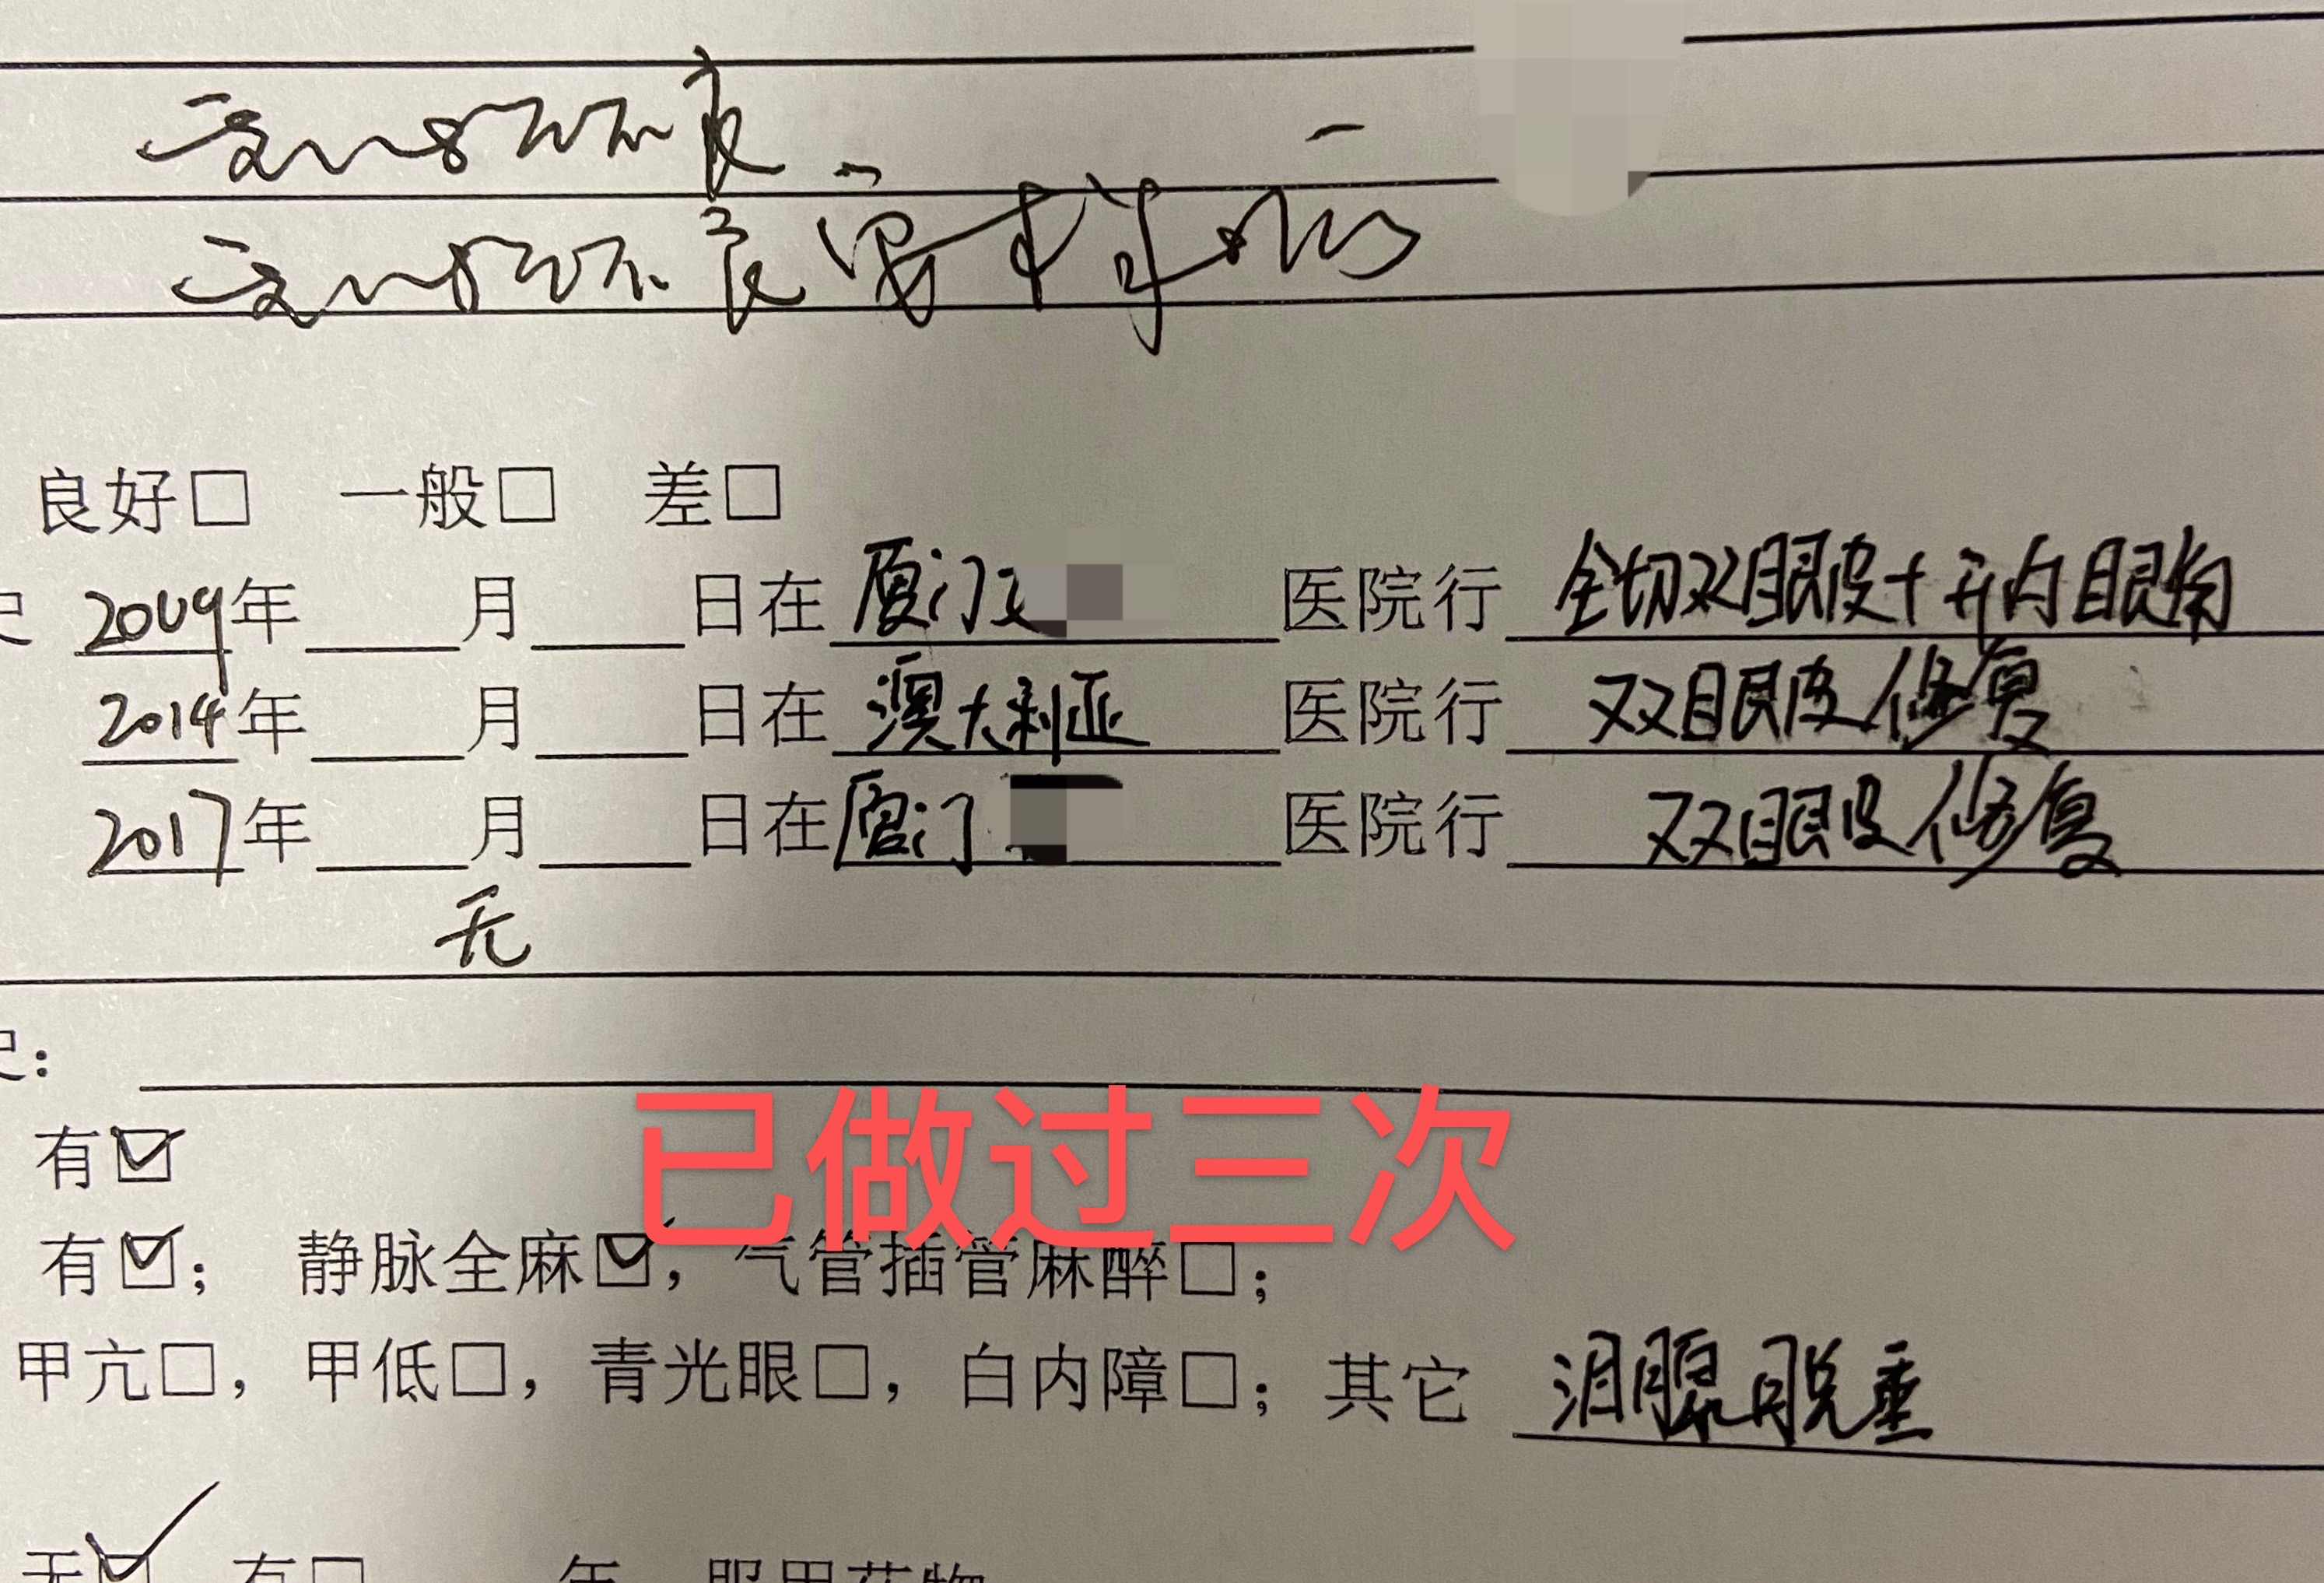 良好□ 一般□ 差□
2009年____月____日在厦门 医院行全切双眼皮+开内眼角
2014年____月____日在澳大利亚医院行双眼皮修复
2017年____月____日在厦门 医院行双眼皮修复
无
史：
已做过三次
有☑
有☑； 静脉全麻☑，气管插管麻醉□；
甲亢□，甲低□，青光眼□，白内障□；其它 泪腺脱垂
无☑ 有□ 年 服用药物